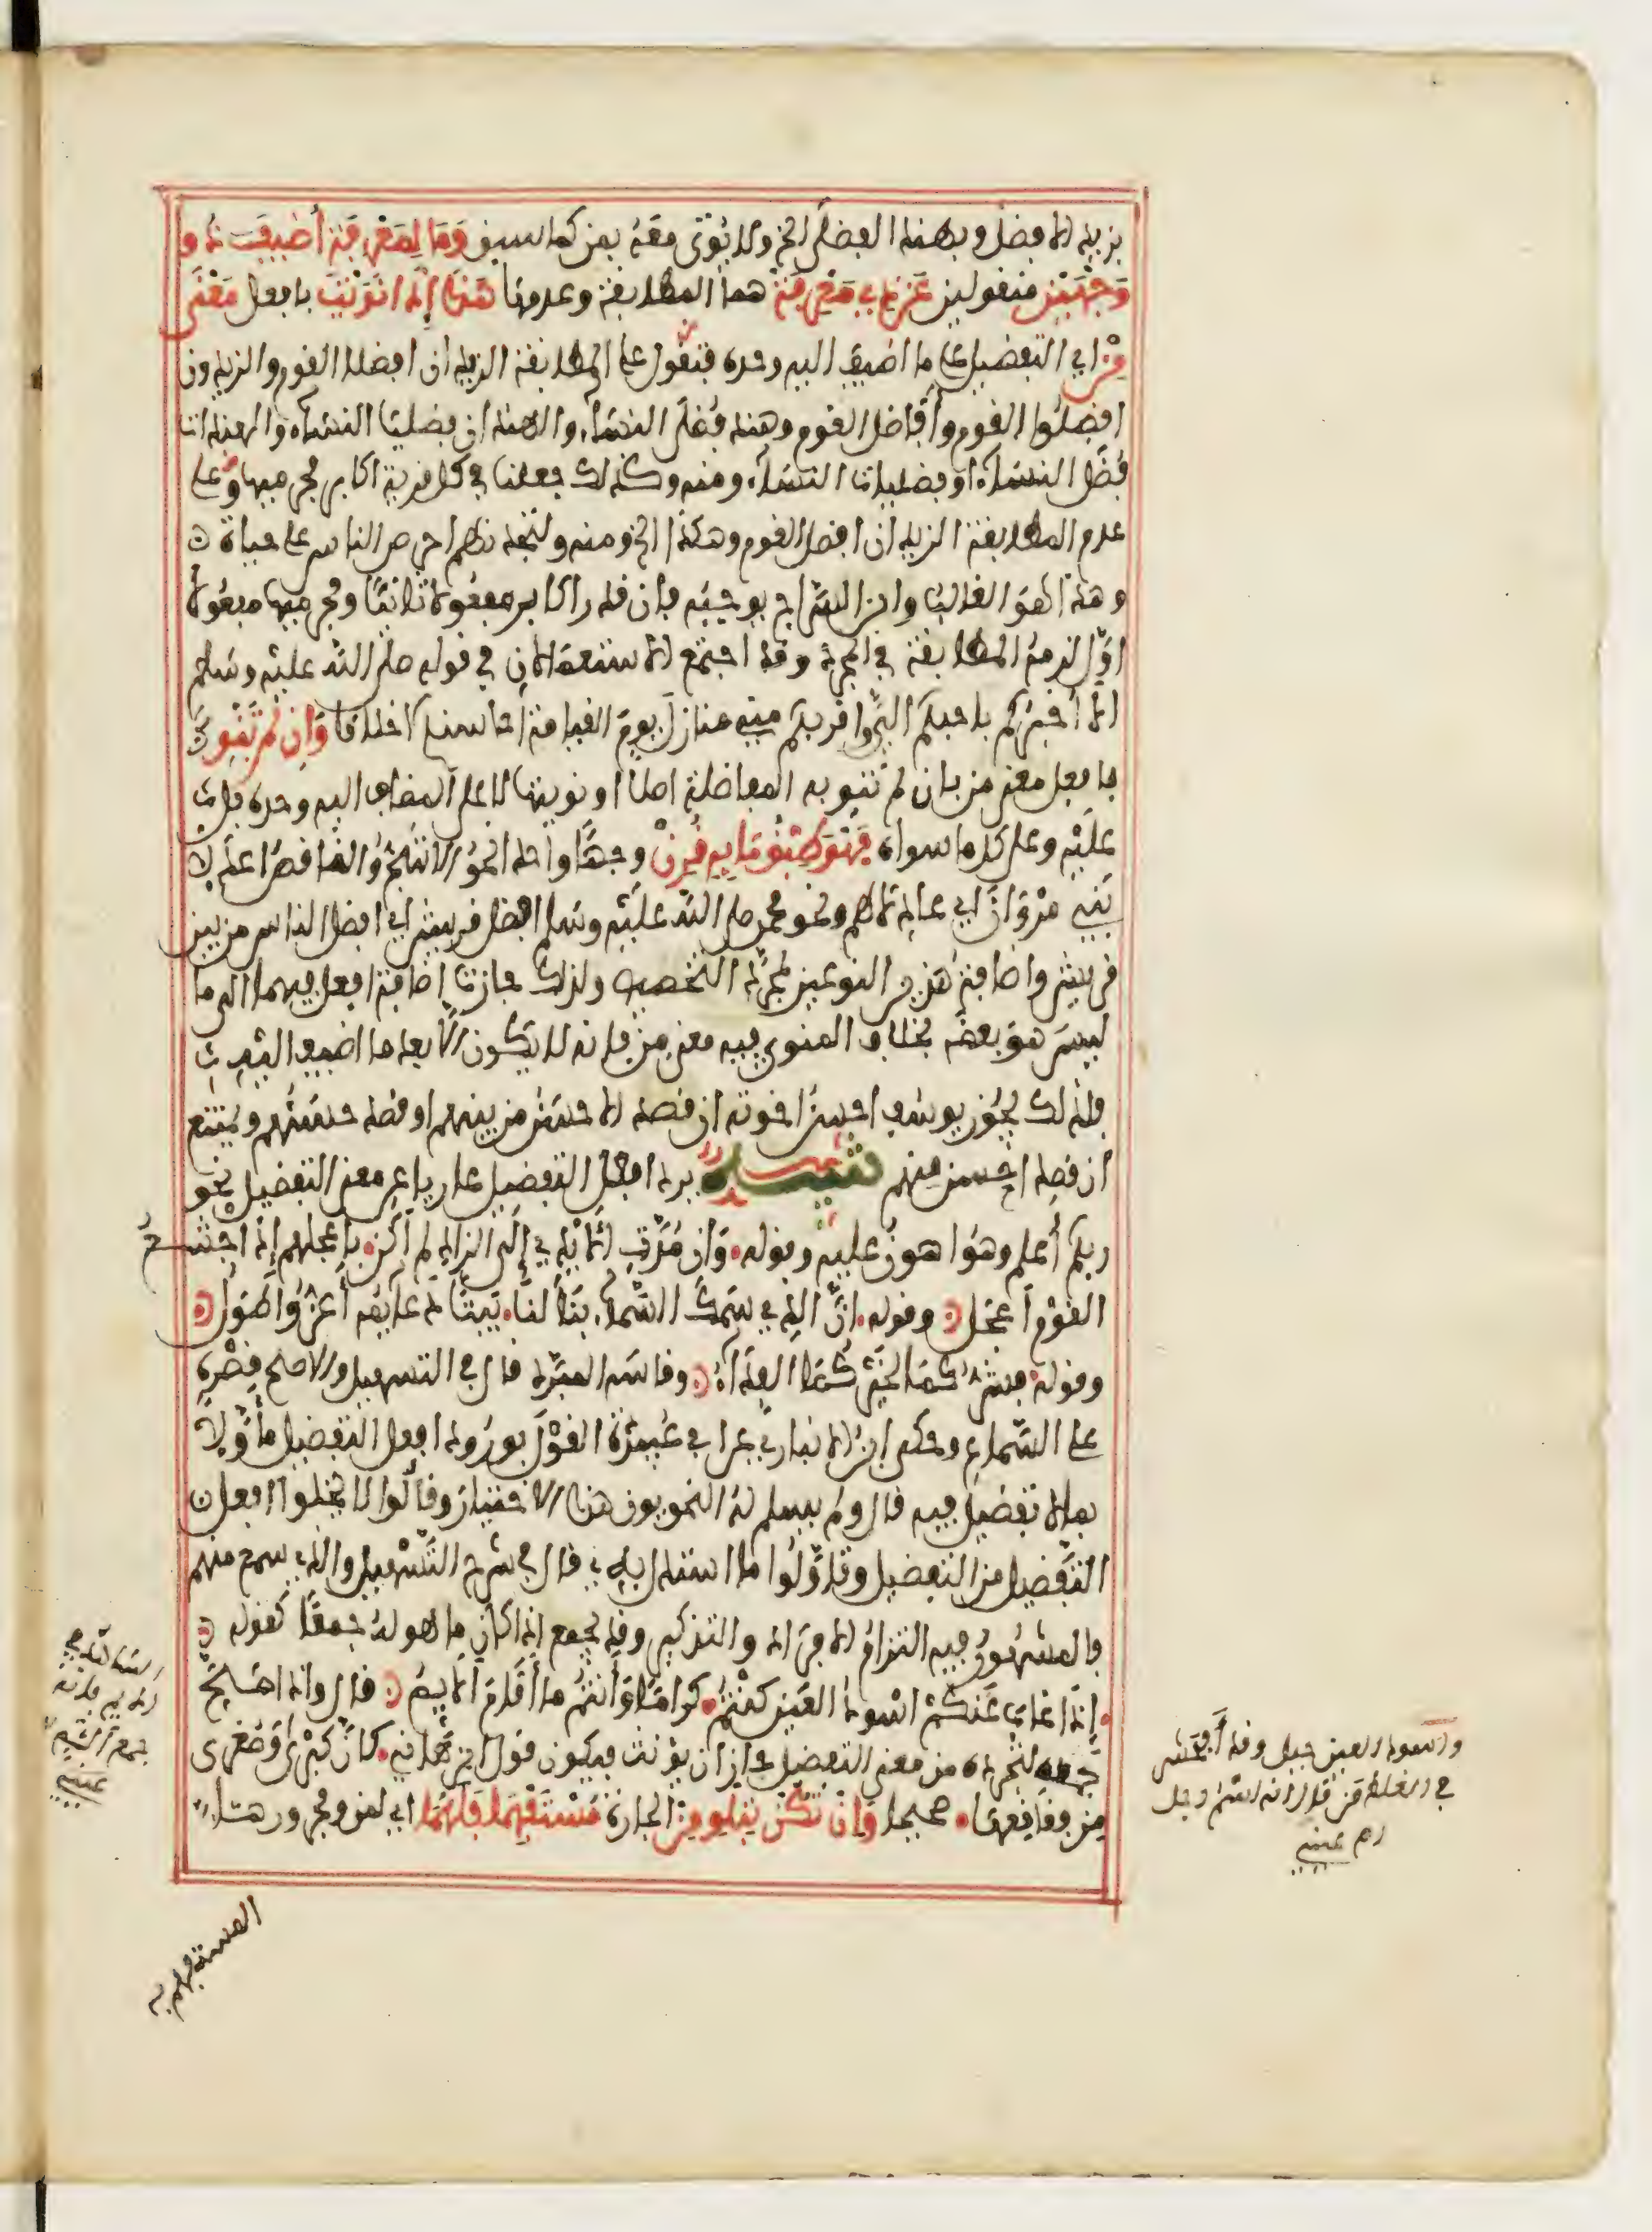 بزيد الافضل وبهند الفضلى الخ ولا يؤتى معه بمن كما سبق وَمَا لِمَعْرِفَهْ أُضِيفَ ذُو
وَجْهَيْنِ منقولين عَنْ ذِي مَعْرِفَهْ هما المطابقة وعدمها هَذَا إِذَا نَوَيْتَ بافعل مَعْنَى
مِنْ اي التفضيل على ما اضيف اليه وحده فتقول على المطابقة الزيدان افضلا القوم والزيدون
افضلُوا القوم وأفاضل القوم وهند فُضْلَى النساء والهندان فضليا النساء والهندات
فُضَّل النساء او فضليات النساء ومنه وكذلك جعلنا في كل قرية اكابر مجرميها وعلى
عدم المطابقة الزيدان افضل القوم وهكذا الخ ومنه ولتجدنهم احرص الناس على حياة
وهذا هو الغالب وابن السراج يوجبه فإن قدر اكابر مفعولا ثانيا ومجرميها مفعولا
اوّل لزمه المطابقة في المجرد وقد اجتمع الاستعمالان في قوله صلى الله عليه وسلم
الا أخبركم باحبكم اليّ واقربكم مني منازل يوم القيامة احاسنكم اخلاقا وَإِنْ لَمْ تَنْوِ
بافعل معنى من بان لم تنو به المفاضلة اصلا او تنويها لا على المضاف اليه وحده بل
عليه وعلى كل ما سواه فَهْوَ طِبْقُ مَا بِهِ قُرِنْ وجها واحدا نحو الاشج والناقص اعدلا
بني مروان اي عادلاهم ونحو محمد صلى الله عليه وسلم افضل قريش اي افضل الناس من بين
قريش واضافة هذين النوعين لمجرد التخصيص ولذلك جازت اضافة افعل فيهما الى ما
ليس هو بعضه بخلاف المنوي فيه معنى من فانه لا يكون الا بعد ما اضيف اليه
فلذلك يجوز يوسف احسن اخوته ان قصد الاحسن من بينهم او قصد حسنهم ويمتنع
ان قصد احسن منهم تنبيه يرد افعل التفضيل عاريا عن معنى التفضيل نحو
ربكم أعلم وهو اهون عليه وقوله وَإن مُدَّتِ الأيدي إلى الزاد لم أكن بأعجلهم إذ اجشع
القوم أعجل وقوله انَّ الذي سمك السماء بنا لنا بيتا دعائمه أعزّ وأطول
وقوله فشركما لخيركما الفداء وقاسه المبرد قال في التسهيل والاصح قصره
على السماع وحكى ابن الانباري عن ابي عبيدة القول بورود افعل التفضيل مأوّلاً
بما لا تفضيل فيه قال ولم يسلم له النحويون هذا الاختيار وقالوا لا يخلو افعل
التفضيل من التفضيل وتأوّلوا ما استدل به قال في شرح التسهيل والذي سمع منه
فالمشهور فيه التزام الافراد والتذكير وقد يجمع اذا كان ما هو له جمعا كقوله
إذا غاب عنكم اسود العين كنتم كراما وأنتم ما أقام ألائم قال واذا صح
جمعه لتجرده من معنى التفضيل جاز ان يؤنث فيكون قول ابن هانئ كأن كبرى وصغرى
من فواقعها صحيحا وَإِنْ تَكُنْ بِتِلْوِ مِنْ الجارة مُسْتَفْهِمَا فَلَهُمَا اي لمن ومجرورها
المستفهم به
واسود العين جبل وقد أفحش
في الغلط من قال انه اسم رجل
اهـ عيني